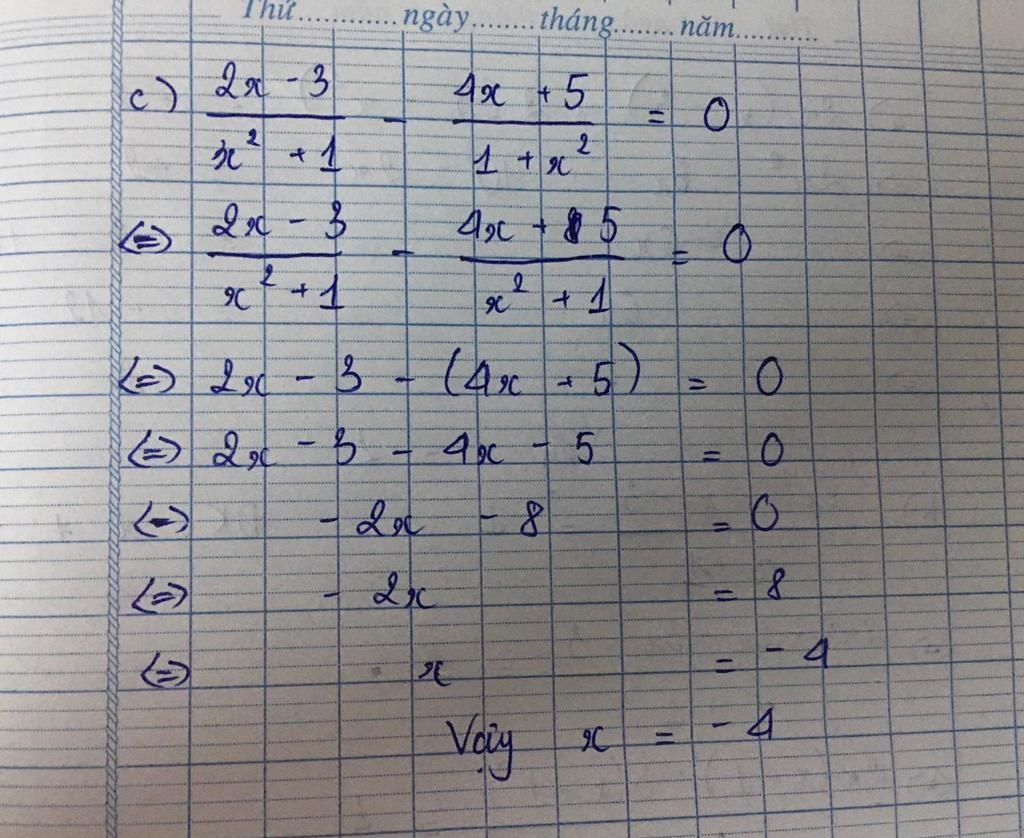 Thứ............ngày........tháng........năm...........
c) (2x - 3)/(x² + 1) - (4x + 5)/(1 + x²) = 0
<=> (2x - 3)/(x² + 1) - (4x + 5)/(x² + 1) = 0
<=> 2x - 3 - (4x + 5) = 0
<=> 2x - 3 - 4x - 5 = 0
<=> - 2x - 8 = 0
<=> - 2x = 8
<=> x = - 4
Vậy x = - 4